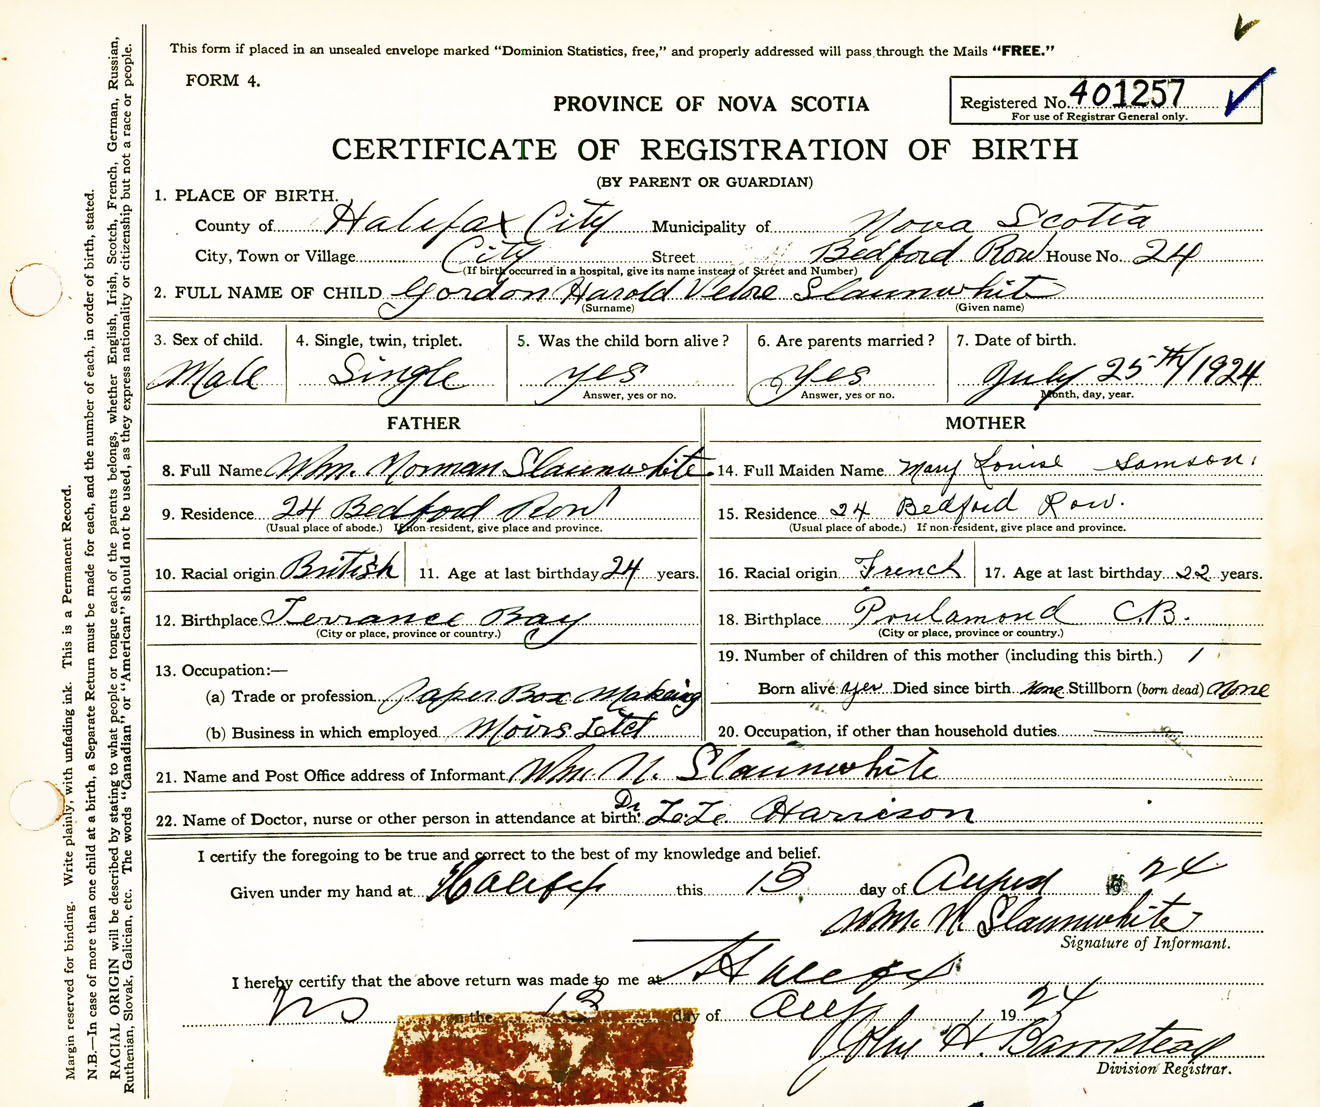 This form if placed in an unsealed envelope marked “Dominion Statistics, free,” and properly addressed will pass through the Mails “FREE.”
FORM 4.
Registered No. 401257
For use of Registrar General only.
PROVINCE OF NOVA SCOTIA
CERTIFICATE OF REGISTRATION OF BIRTH
(BY PARENT OR GUARDIAN)
1. PLACE OF BIRTH.
County of Halifax City Municipality of Nova Scotia
City, Town or Village City Street Bedford Row House No. 24
(If birth occurred in a hospital, give its name instead of Street and Number)
2. FULL NAME OF CHILD Gordon Harold Slaunwhite
(Surname) (Given name)
3. Sex of child. 4. Single, twin, triplet. 5. Was the child born alive? 6. Are parents married? 7. Date of birth.
Male Single yes Yes July 25th/1924
Answer, yes or no. Answer, yes or no. Month, day, year.
FATHER MOTHER
8. Full Name Wm. Norman Slaunwhite 14. Full Maiden Name Mary Louise Samson.
9. Residence 24 Bedford Row 15. Residence 24 Bedford Row.
(Usual place of abode.) If non-resident, give place and province. (Usual place of abode.) If non-resident, give place and province.
10. Racial origin British 11. Age at last birthday 24 years. 16. Racial origin French 17. Age at last birthday 22 years.
12. Birthplace Terrance Bay 18. Birthplace Poulamond C.B.
(City or place, province or country.) (City or place, province or country.)
13. Occupation:— 19. Number of children of this mother (including this birth.) 1
(a) Trade or profession Paper Box Making Born alive yes Died since birth None Stillborn (born dead) None
(b) Business in which employed Moirs Ltd 20. Occupation, if other than household duties
21. Name and Post Office address of Informant Wm. N. Slaunwhite
22. Name of Doctor, nurse or other person in attendance at birth. Dr Harrison
I certify the foregoing to be true and correct to the best of my knowledge and belief.
Given under my hand at Halifax this 13 day of August 1924
Wm. N. Slaunwhite
Signature of Informant.
I hereby certify that the above return was made to me at Halifax
NS on the 13 day of Aug 1924
John H. Barnstead
Division Registrar.
Margin reserved for binding. Write plainly, with unfading ink. This is a Permanent Record.
N.B.—In case of more than one child at a birth, a Separate Return must be made for each, and the number of each, in order of birth, stated.
RACIAL ORIGIN will be described by stating to what people or tongue each of the parents belongs, whether English, Irish, Scotch, French, German, Russian,
Ruthenian, Slovak, Galician, etc. The words “Canadian” or “American” should not be used, as they express nationality or citizenship but not a race or people.